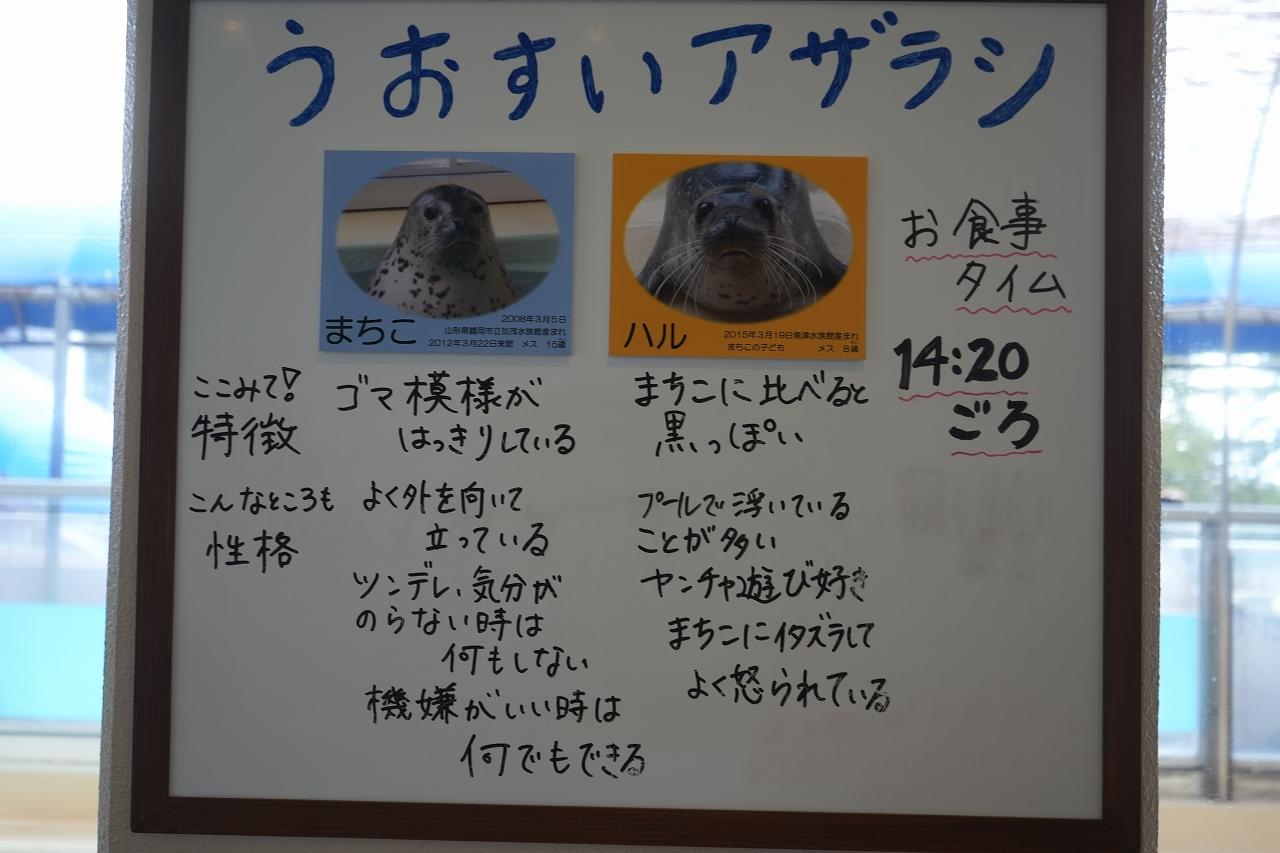 うおすいアザラシ
まちこ
2008年3月5日
山形県鶴岡市立加茂水族館産まれ
2012年3月22日来館 メス 15歳
ハル
2015年3月19日魚津水族館産まれ
まちこの子ども メス 8歳
お食事
タイム
14:20
ごろ
ここみて!
特徴
ゴマ模様が
はっきりしている
まちこに比べると
黒っぽい
こんなところも
性格
よく外を向いて
立っている
ツンデレ、気分が
のらない時は
何もしない
機嫌がいい時は
何でもできる
プールで浮いている
ことが多い
ヤンチャ遊び好き
まちこにイタズラして
よく怒られている